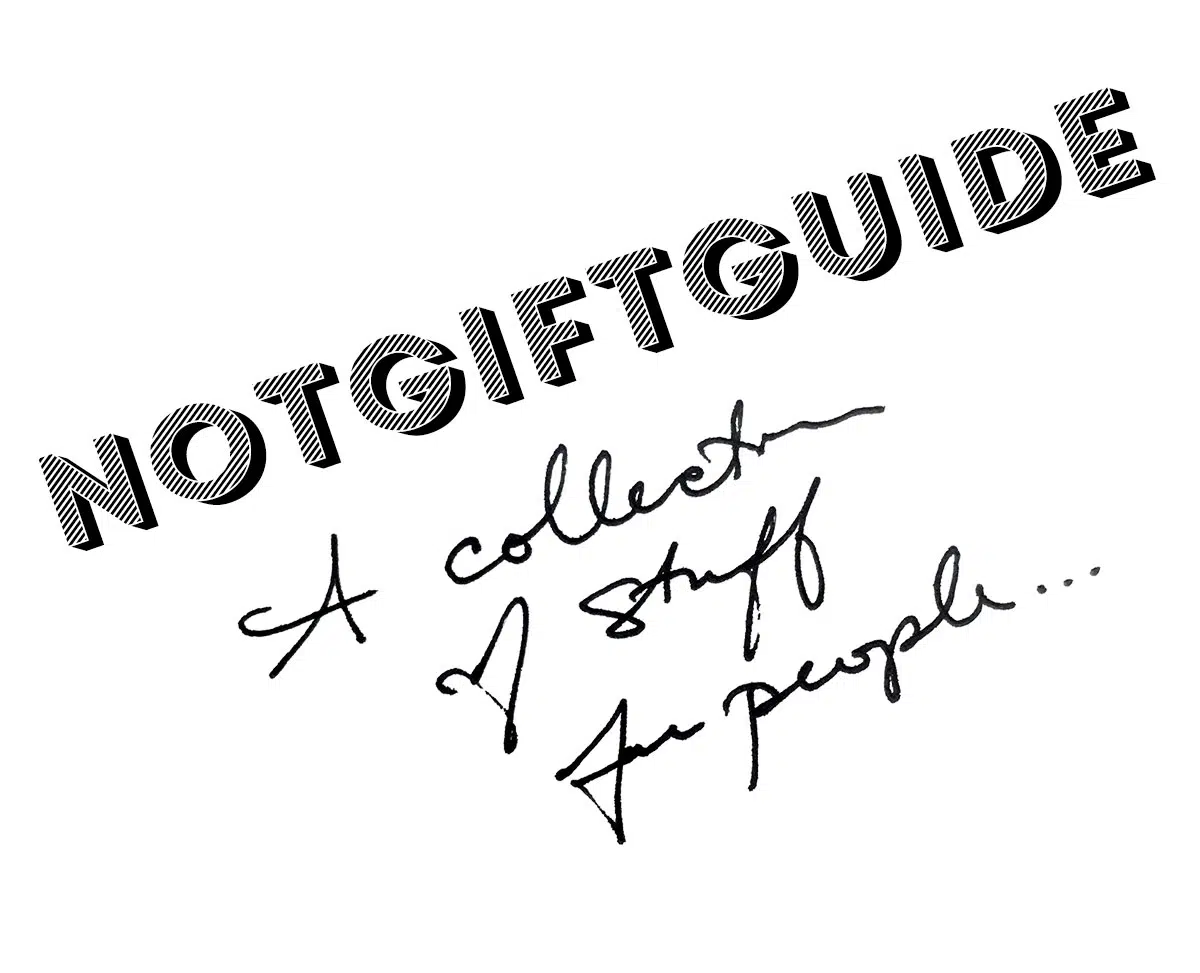 NOTGIFTGUIDE
A collection
of stuff
for people...